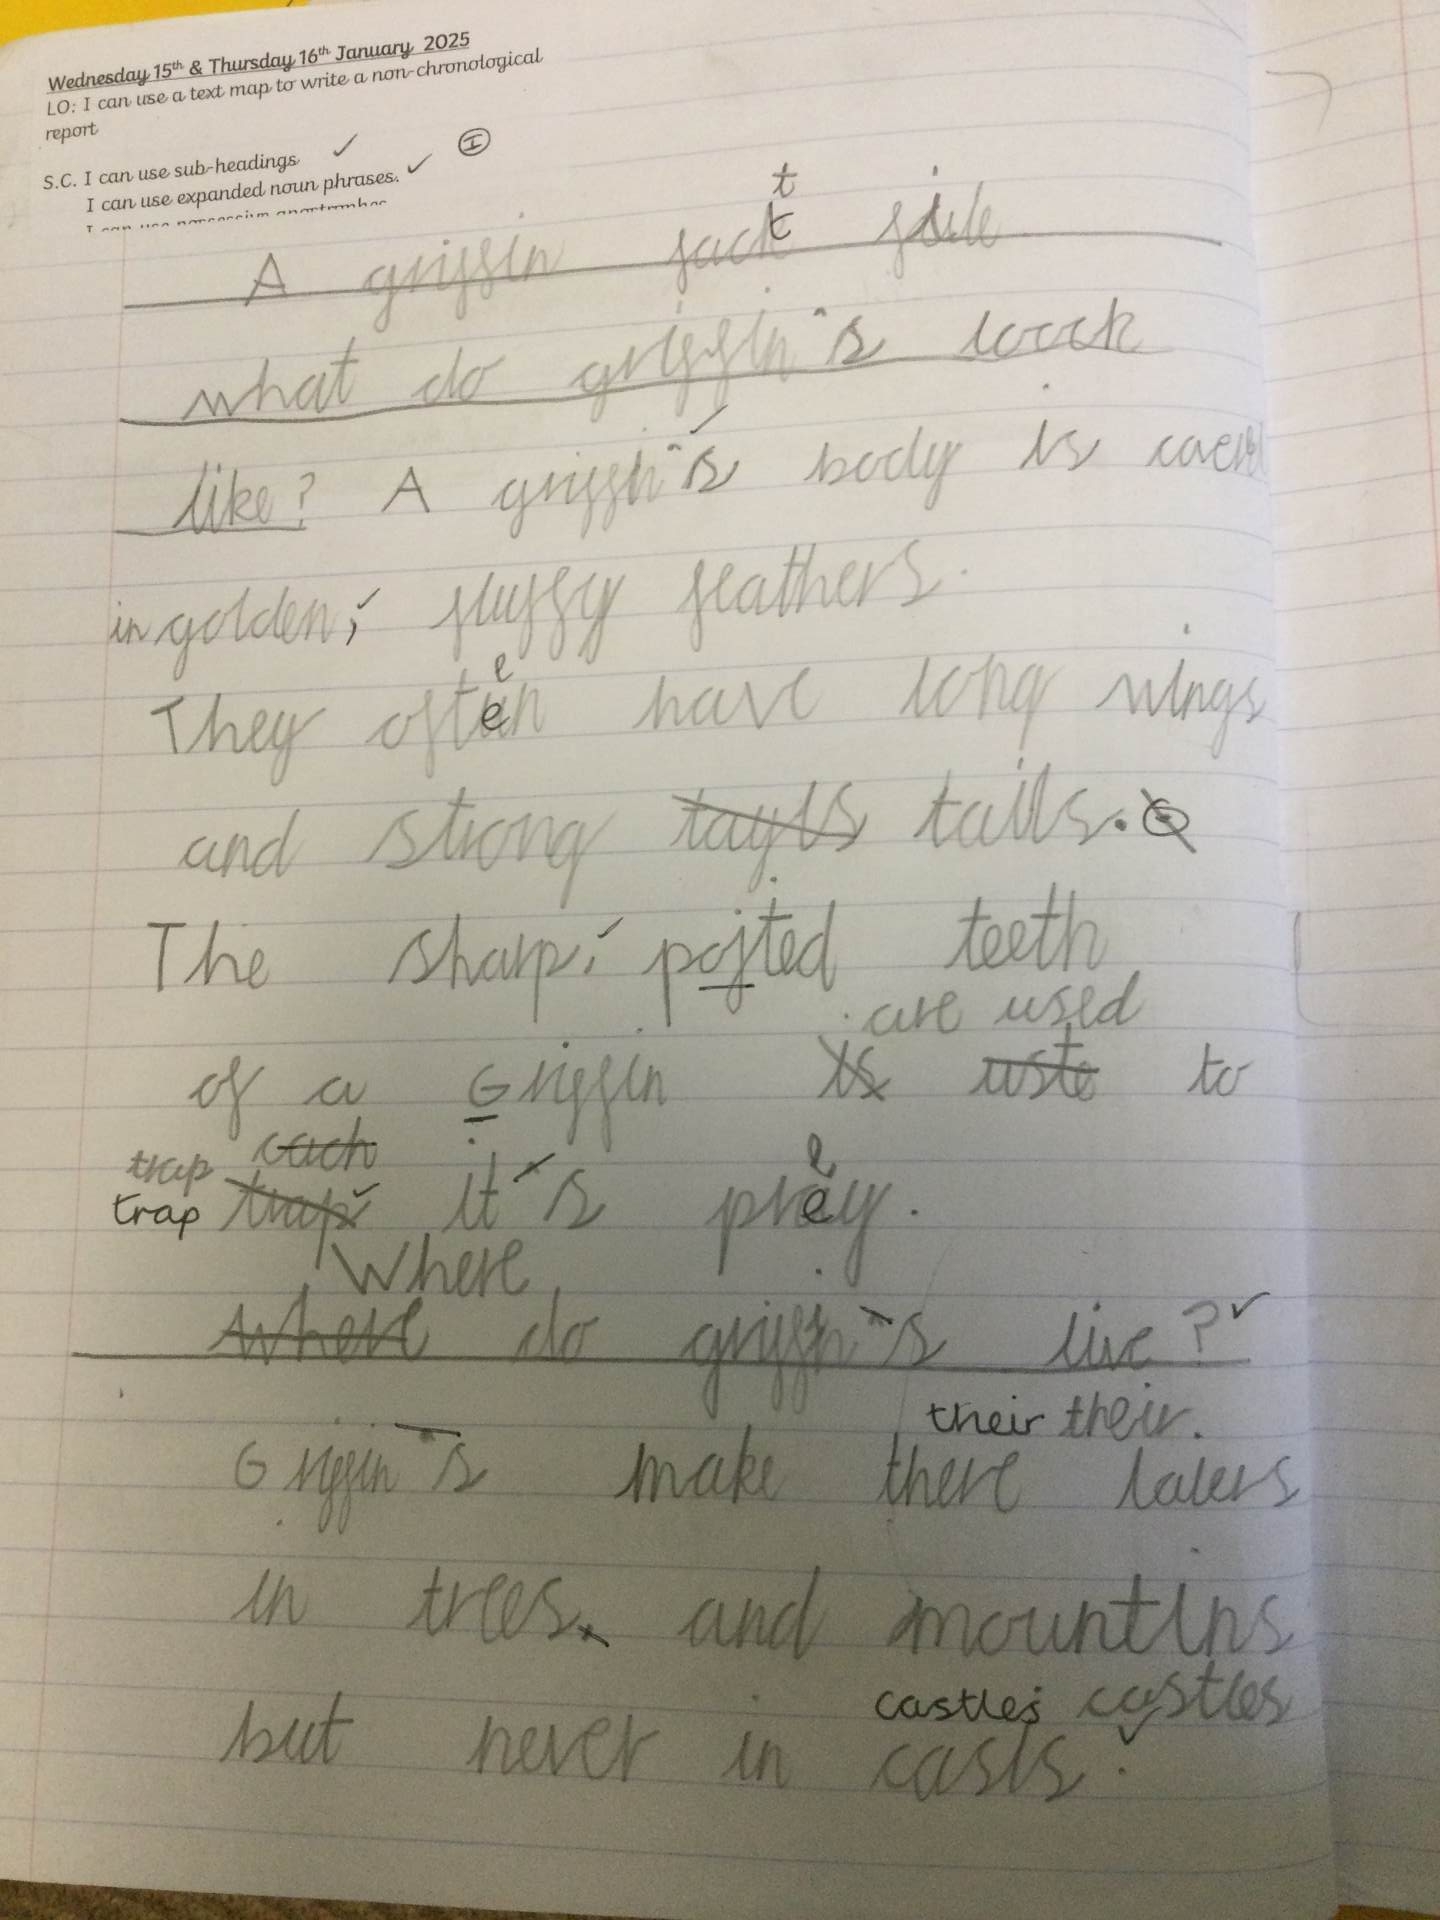 Wednesday 15th & Thursday 16th January 2025
LO: I can use a text map to write a non-chronological
report
S.C. I can use sub-headings ✓ I
I can use expanded noun phrases. ✓
I can use possessive apostrophes
t
A griffin fact file
what do griffin's loock
like? A griffin's body is
in golden, fluffy feathers.
e
They often have long wings
and strong tayls tails.
The sharp, pojted teeth
are used
of a Griffin is uste to
trap cach e
trap trap it's prey.
Where
where do griffin's live?
their their.
Griffin's make there laiers
in trees and mountins
castles castles
but never in casls.